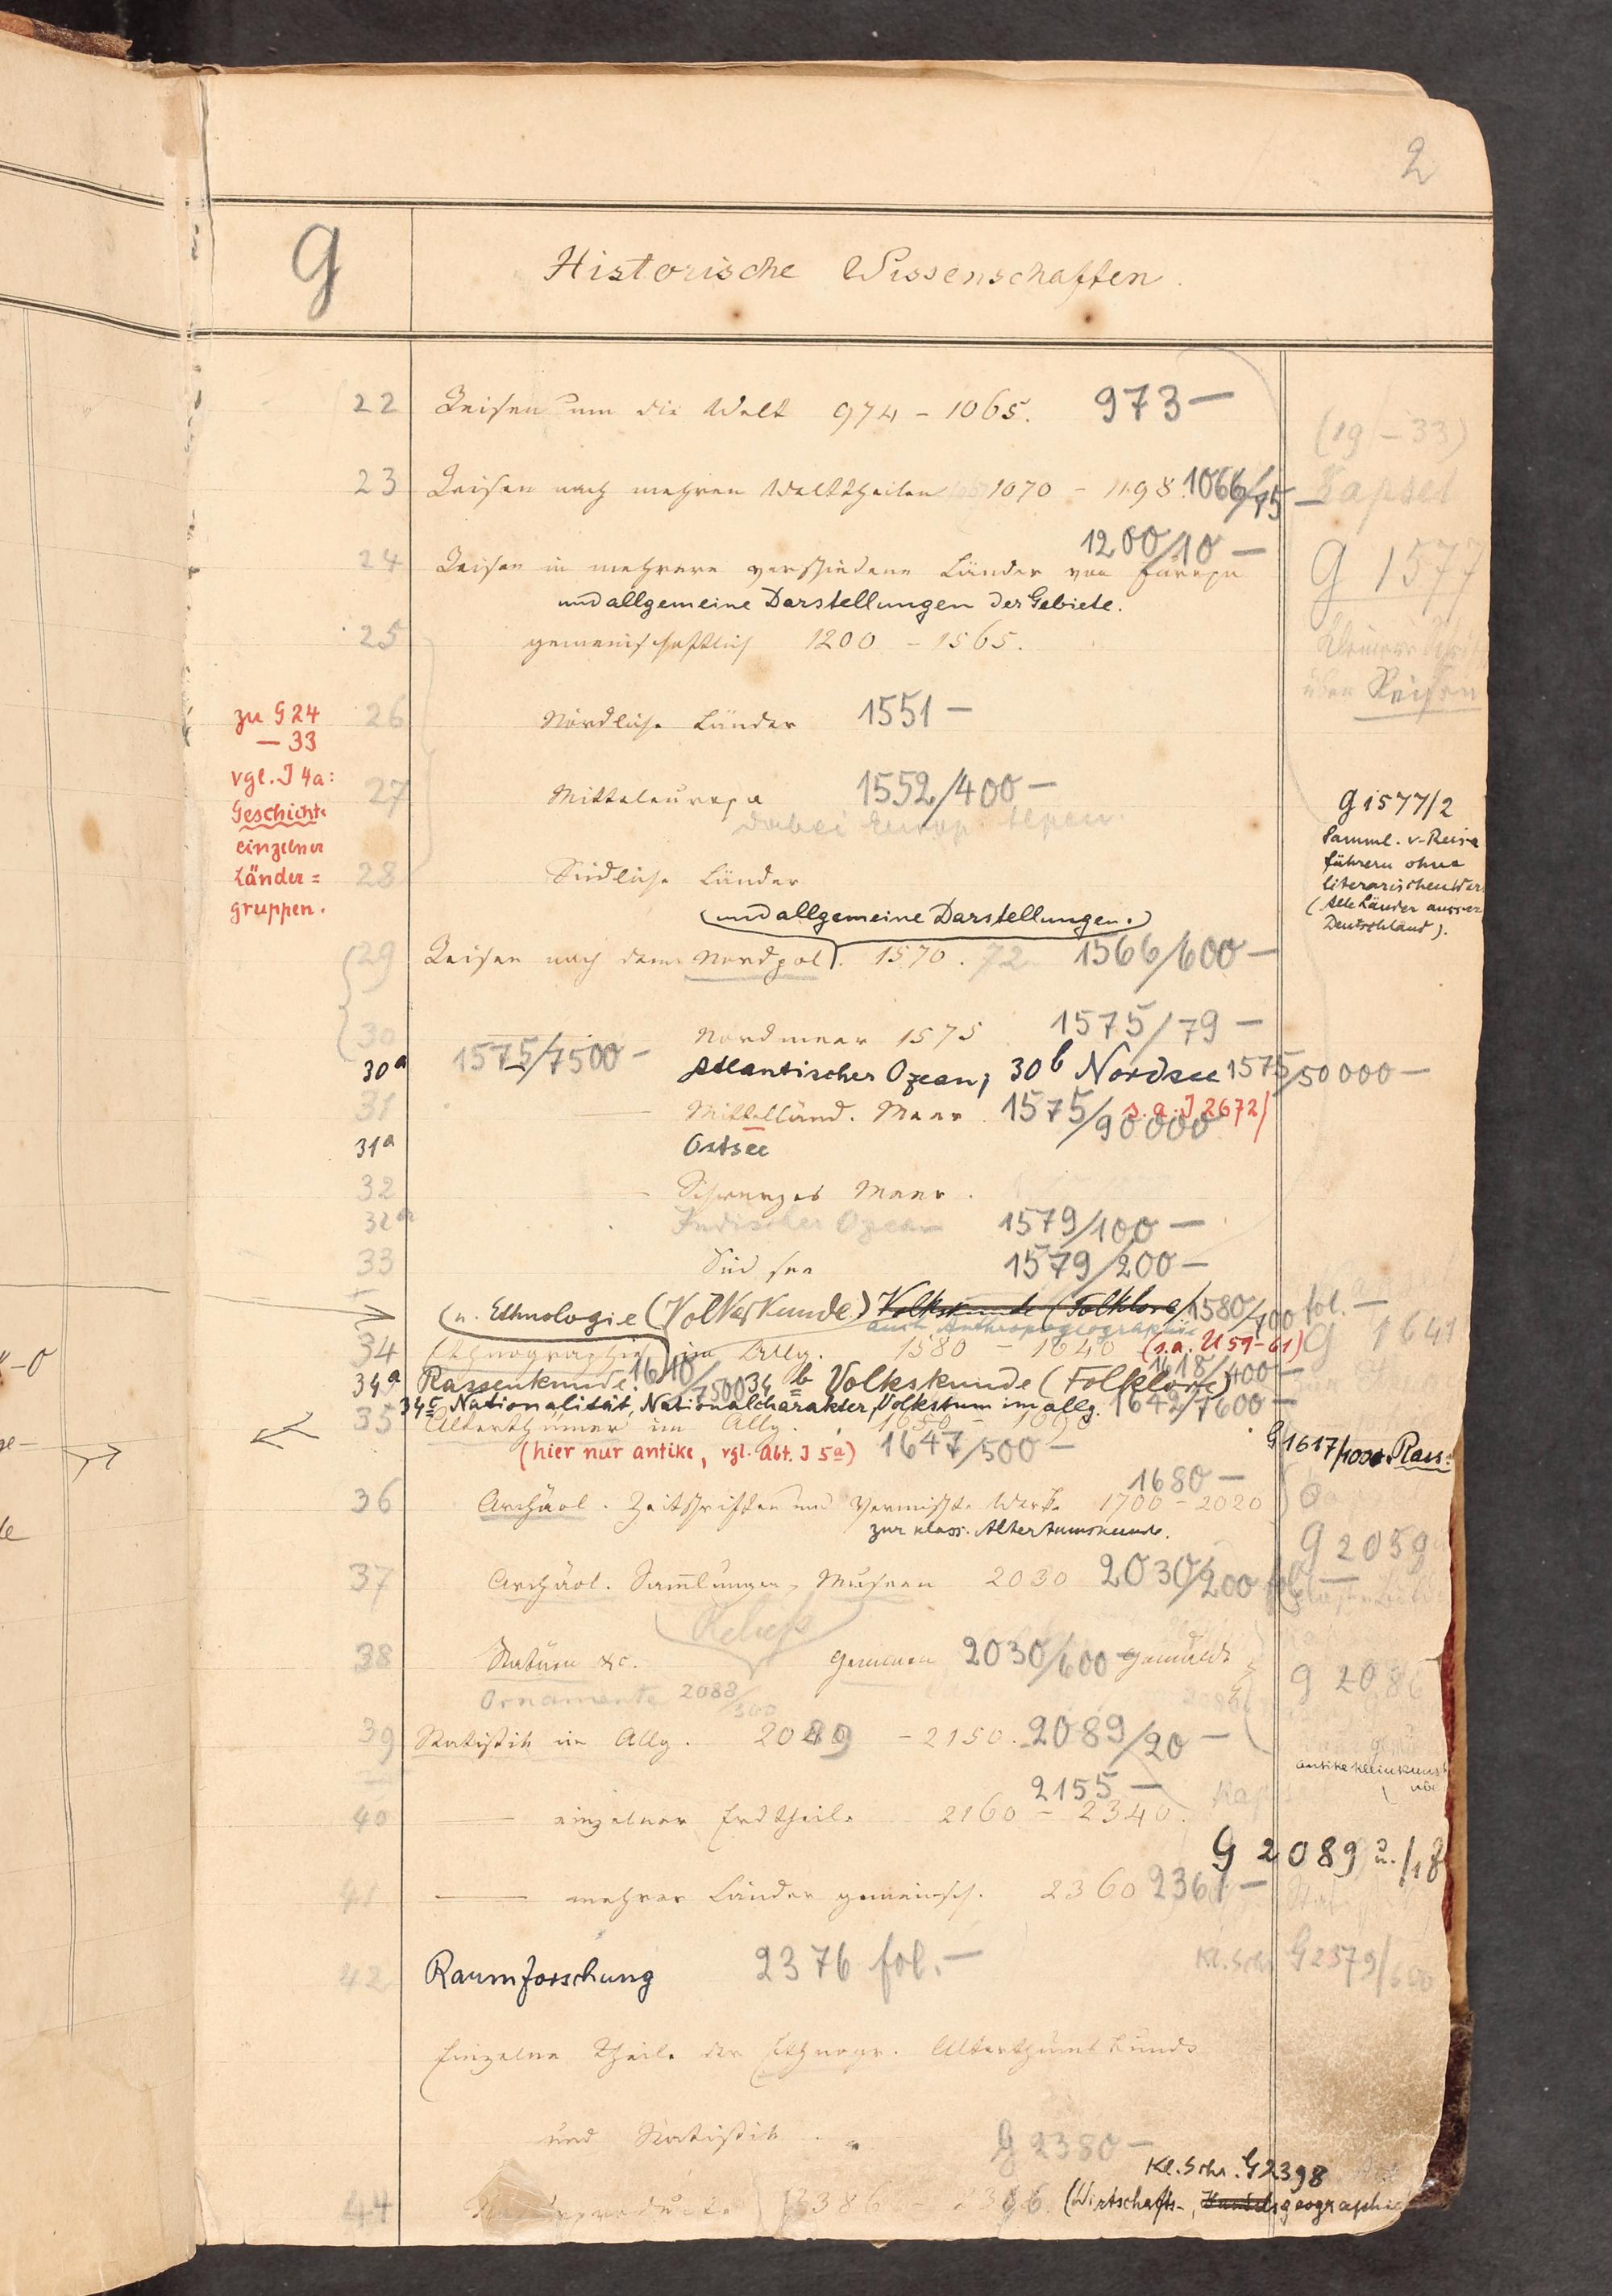 2
G
Historische Wissenschaften.
22 Reisen um die Welt 974 - 1065. 973 —
(19 - 33)
23 Reisen nach mehren Welttheilen 1070 - 1198. 1066/75 —
Kapsel
1200/10 —
24 Reisen in mehrere verschiedene Länder von Europa
G 1577
und allgemeine Darstellungen der Gebiete.
25 gemeinschaftlich 1200 - 1565.
über Reisen
zu G 24
— 33
vgl. J 4a:
Geschichte
einzelner
Länder=
gruppen.
26 Nördliche Länder 1551 —
27 Mitteleuropa 1552/400 —
dabei Europ. Alpen.
G 1577/2
Samml. v. Reise
führern ohne
literarischen Wer
(Alle Länder ausser
Deutschland).
28 Südliche Länder
(und allgemeine Darstellungen.)
29 Reisen nach dem Nordpol. 1570. 72 1566/600 —
30 Nordmeer 1575 1575/79 —
30a 1575/7500 — Atlantischer Ozean; 30b Nordsee 1575/50000 —
31 — Mittelländ. Meer. 1575/90000 s. a. J 2672/
31a Ostsee
32 — Schwarzes Meer.
32a Indischer Ozean 1579/100 —
33 Süd see 1579/200 —
(u. Ethnologie (Völkerkunde) Volkskunde (Folklore) 1580/700 fol. —
auch Anthropogeographie
34 Ethnographie im Allg. 1580 - 1640 (s. a. U 59-61)
G 1641
34a Rassenkunde. 1610/7500 34b Volkskunde (Folklore) 1618/400 —
34c Nationalität, Nationalcharakter, Volkstum im allg. 1642/7600 —
35 Alterthümer im Allg. 1650 -
(hier nur antike, vgl. Abt. J 5a) 1647/500 —
G 1617/1000 Rass.
1680 —
36 Archäol. Zeitschriften und Vermischte Werke 1700 - 2020
zur klass. Altertumskunde.
G 2059
37 Archäol. Sammlungen, Museen 2030 2030/200 fol. —
Reliefs
38 Statuen &c. Gemmen 2030/600 — Gemälde
G 2086
Ornamente 2088/300
39 Statistik im Allg. 2089 - 2150. 2089/20 —
antike Kleinkunst
2155 —
40 — einzelner Erdtheile 2160 - 2340.
G 2089 u. /18
41 — mehrer Länder gemeinsch. 2360 2361 —
42 Raumforschung 2376 fol. —
Kl. Schr. G 2379/600
Einzelne Theile der Ethnogr. Alterthumskunde
und Statistik. G 2380 —
Kl. Schr. G 2398
44 2386 - 2396. (Wirtschafts-, Handelsgeographie